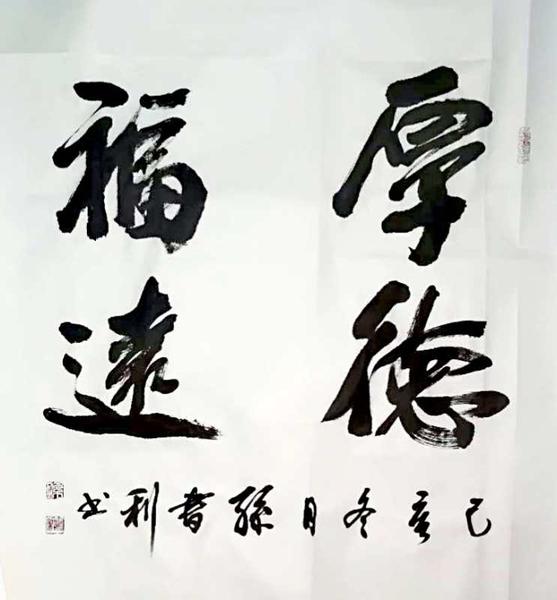 厚德
福遠
己亥冬月孫利书